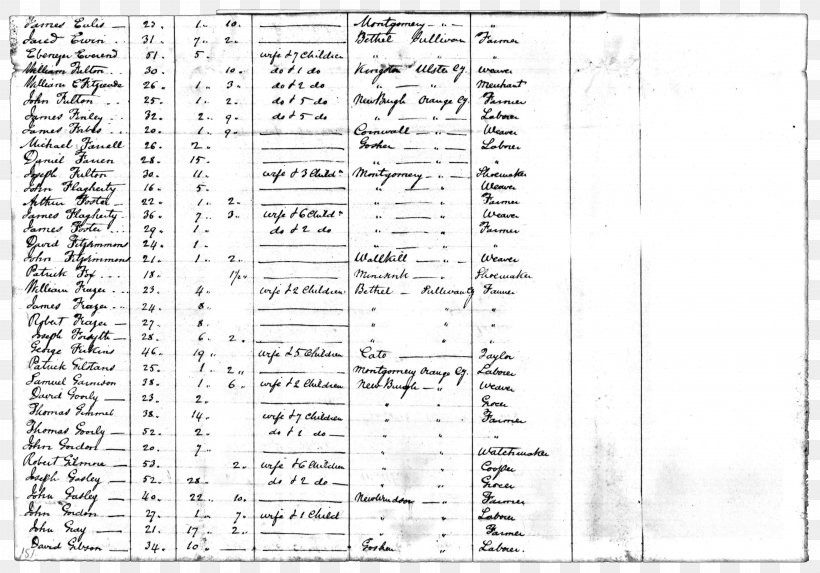 James Eulis 23 .. 1 .. 10 .. Montgomery — .. — "
Jared Ewin .. 31 .. 7 .. 2 .. Bethel Sullivan Farmer
Ebenezer Everend 51 .. 5 .. wife & 7 Children " "
William Fulton .. 30 .. 10 .. do & 1 do Kingston Ulster Cy. Weaver
William E 26 .. 1 .. 3 .. do & 2 do " — " — Merchant
John Fulton .. 25 .. 1 .. 2 .. do & 5 do NewBurgh Orange Cy. Farmer
James Finley .. 32 .. 2 .. 9 .. do & 5 do " — " — Laborer
James .. 20 .. 1 .. 9 .. Cornwall — " — Weaver
Michael Farrell 26 .. 2 .. Goshen — " — Laborer
Daniel Farren 28 .. 15 .. " — " — "
Joseph Fulton 30 .. 11 .. wife & 3 Childn Montgomery — " — Shoemaker
John Flagherty 16 .. 5 .. " — " — Weaver
Arthur Foster .. 22 .. 1 .. 2 .. " — " — Farmer
James Flagherty 36 .. 7 .. 3 .. wife & 6 Childn " — " — Weaver
James Foster .. 29 .. 1 .. do & 2 do " — " — Farmer
David Fitzsimmons 24 .. 1 .. " — " — "
John Fitzsimmons 21 .. 1 .. 2 .. Wallkill — " — Weaver
Patrick Fox .. 18 .. 1/2 .. Minisink — " — Shoemaker
William Frazer .. 23 .. 4 .. wife & 2 Children Bethel — Sullivan Cy Farmer
James Frazer .. 24 .. 8 .. " " "
Robert Frazer — 27 .. 8 .. " " "
Joseph Forsyth — 28 .. 6 .. 2 .. " " "
George Firkins 46 .. 19 .. wife & 5 Children Cato — " — Taylor
Patrick Gilstans 25 .. 1 .. 2 .. Montgomery Orange Cy. Laborer
Samuel Garnison 38 .. 1 .. 6 .. wife & 2 Children NewBurgh — " Weaver
David Goorly — 23 .. 2 .. " " Grocer
Thomas Gimmel 38 .. 14 .. wife & 7 Children " " Farmer
Thomas Goorly — 52 .. 2 .. do & 1 do — " " "
John Gordon — 20 .. 7 .. " " Watchmaker
Robert Gilmore — 53 .. 2 .. wife & 6 Children " " Cooper
Joseph Gasley — 52 .. 28 .. do & 2 do — " " Grocer
John Gasley — 40 .. 22 .. 10 .. NewWindsor — " Farmer
John Gordon — 27 .. 1 .. 7 .. wife & 1 Child " " Laborer
John Gray — 21 .. 17 .. 2 .. " " Farmer
David Gibson — 34 .. 10 .. Goshen " Laborer